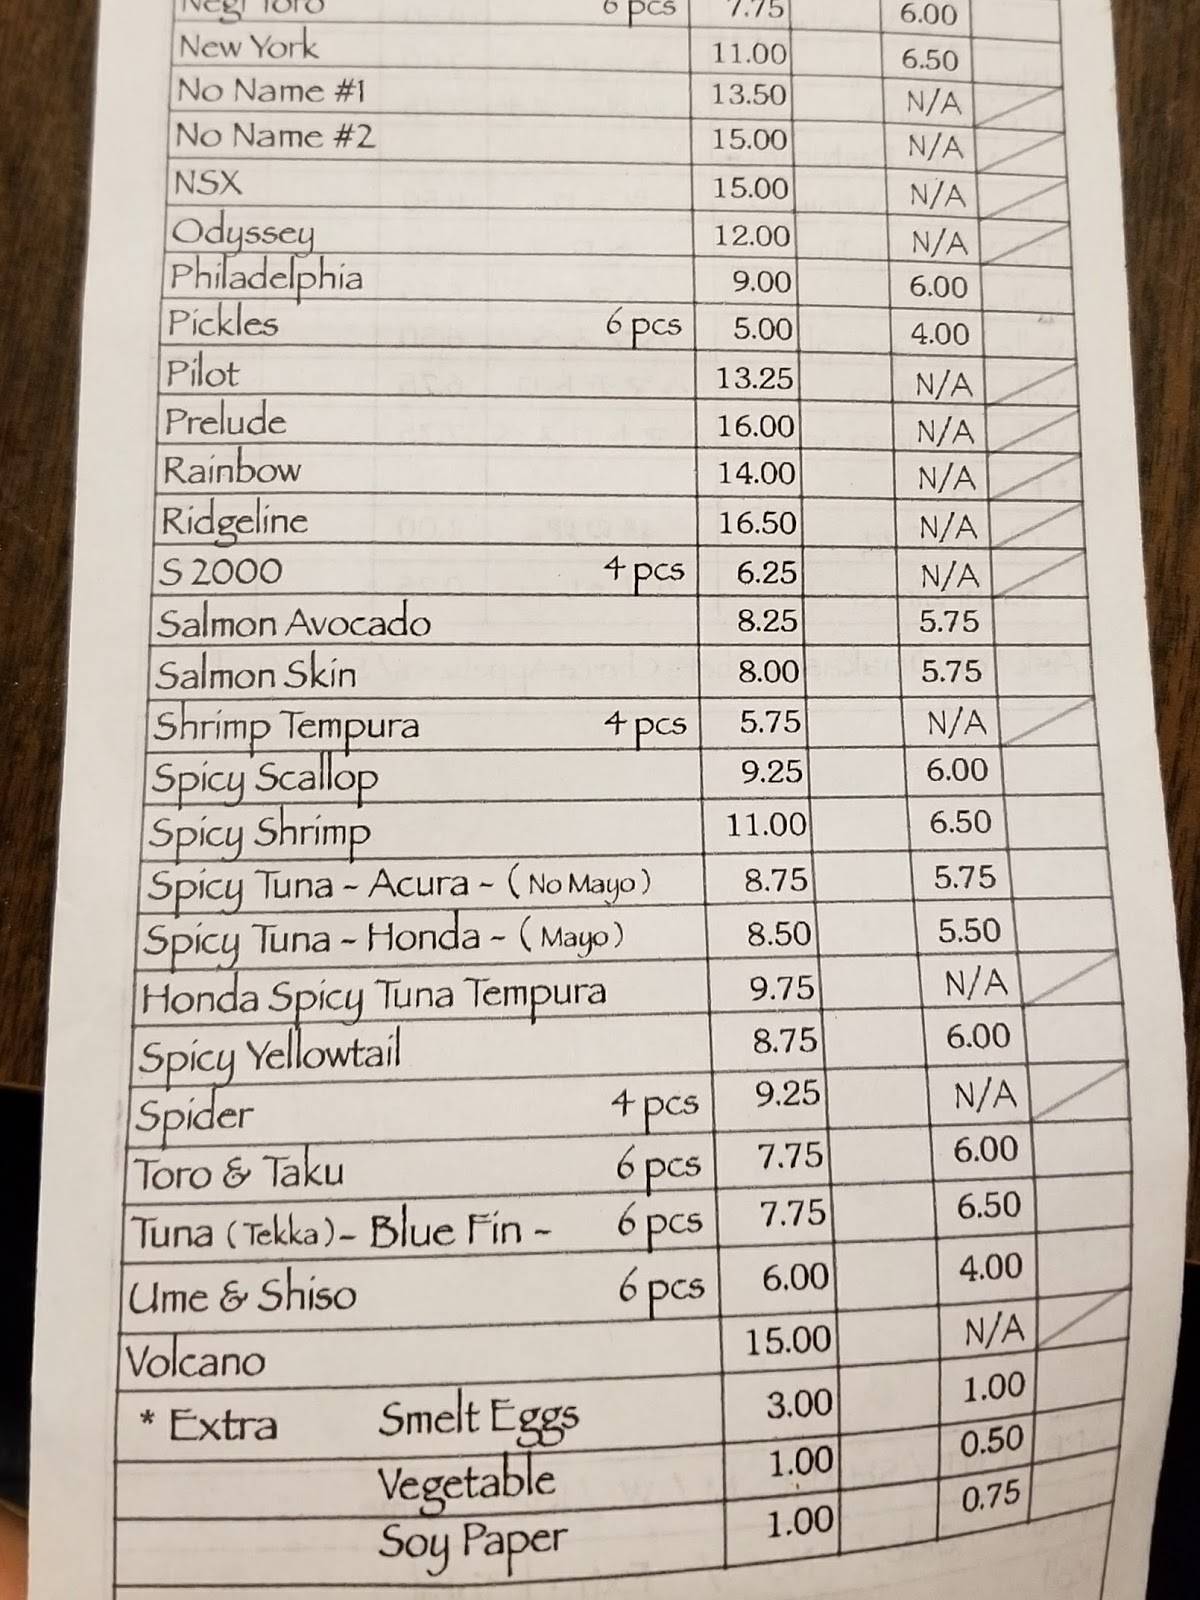 Negi Toro 6 pcs 7.75 6.00
New York 11.00 6.50
No Name #1 13.50 N/A
No Name #2 15.00 N/A
NSX 15.00 N/A
Odyssey 12.00 N/A
Philadelphia 9.00 6.00
Pickles 6 pcs 5.00 4.00
Pilot 13.25 N/A
Prelude 16.00 N/A
Rainbow 14.00 N/A
Ridgeline 16.50 N/A
S 2000 4 pcs 6.25 N/A
Salmon Avocado 8.25 5.75
Salmon Skin 8.00 5.75
Shrimp Tempura 4 pcs 5.75 N/A
Spicy Scallop 9.25 6.00
Spicy Shrimp 11.00 6.50
Spicy Tuna ~ Acura ~ (No Mayo) 8.75 5.75
Spicy Tuna ~ Honda ~ (Mayo) 8.50 5.50
Honda Spicy Tuna Tempura 9.75 N/A
Spicy Yellowtail 8.75 6.00
Spider 4 pcs 9.25 N/A
Toro & Taku 6 pcs 7.75 6.00
Tuna (Tekka) ~ Blue Fin ~ 6 pcs 7.75 6.50
Ume & Shiso 6 pcs 6.00 4.00
Volcano 15.00 N/A
* Extra Smelt Eggs 3.00 1.00
Vegetable 1.00 0.50
Soy Paper 1.00 0.75